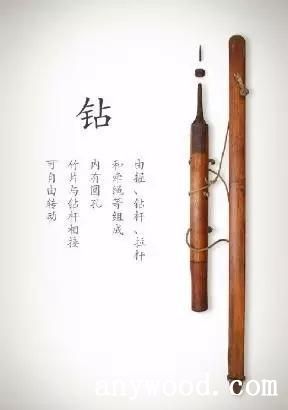 钻
由握、钻杆、拉杆
和牵绳等组成
内有圆孔
竹片与钻杆相接
可自由转动
anywood.com